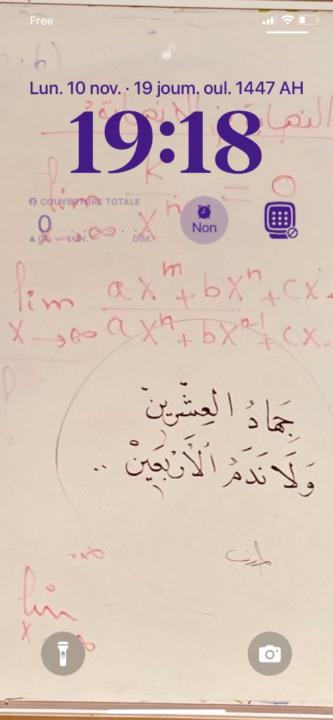 Free
Lun. 10 nov. · 19 joum. oul. 1447 AH
19:18
النهاية
COUVERTURE TOTALE
0
LUN.
DIM.
Non
lim k/xⁿ = 0
x→∞
lim axᵐ + bxⁿ + cx
x→∞ axⁿ + bxⁿ⁻¹ + cx
جِهَادُ العِشْرِينْ
وَلَا نَدَمُ الْأَرْبَعِينْ ..
lim
x ∞